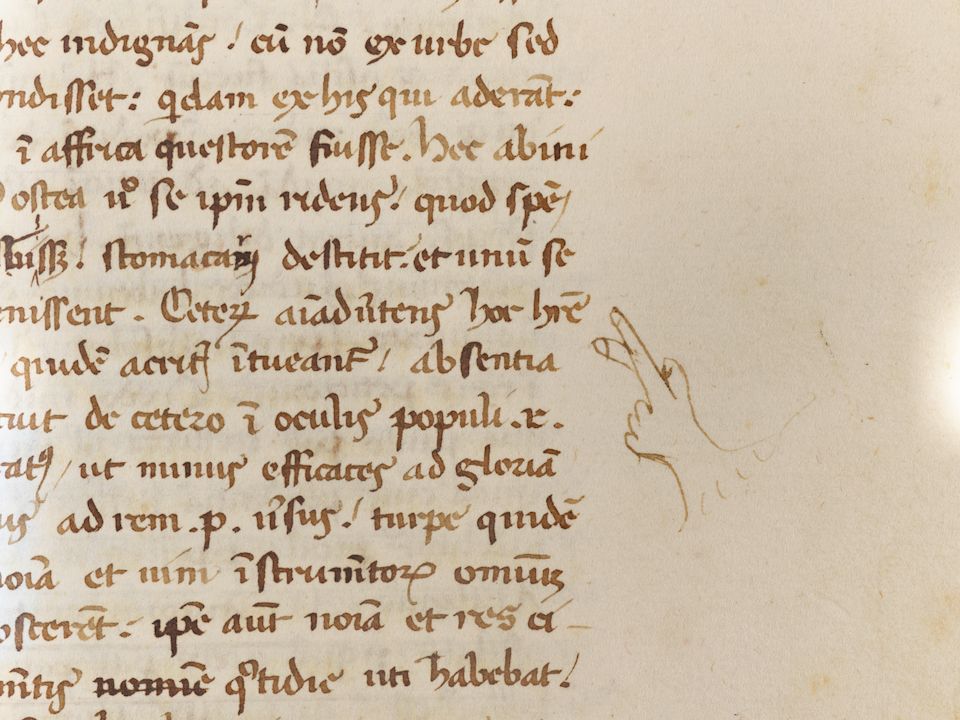 hec indignãs / cũ nõ ex urbe sed
ondisset: qdam ex his qui aderãt:
ĩ affrica questorẽ fuisse. hec ab ini
Postea ṽo se ipm̃ ridens / quod spẽ/
destitit. et unũ se
enissent. Ceteꝝ aĩadũtens hoc hrẽ
quidẽ acrit᷑ ĩtueant᷑ / absentia
cuit de cetero ĩ oculis populi .r.
ratꝯ / ut minus efficaces ad gloriã
us ad rem .p. ũsus / turpe quidẽ
noĩa et uim ĩstrum̃toꝝ omniũ
oscerẽt. ipẽ aũt noĩa et res ci
m̃tis q͂tidie uti habebat /